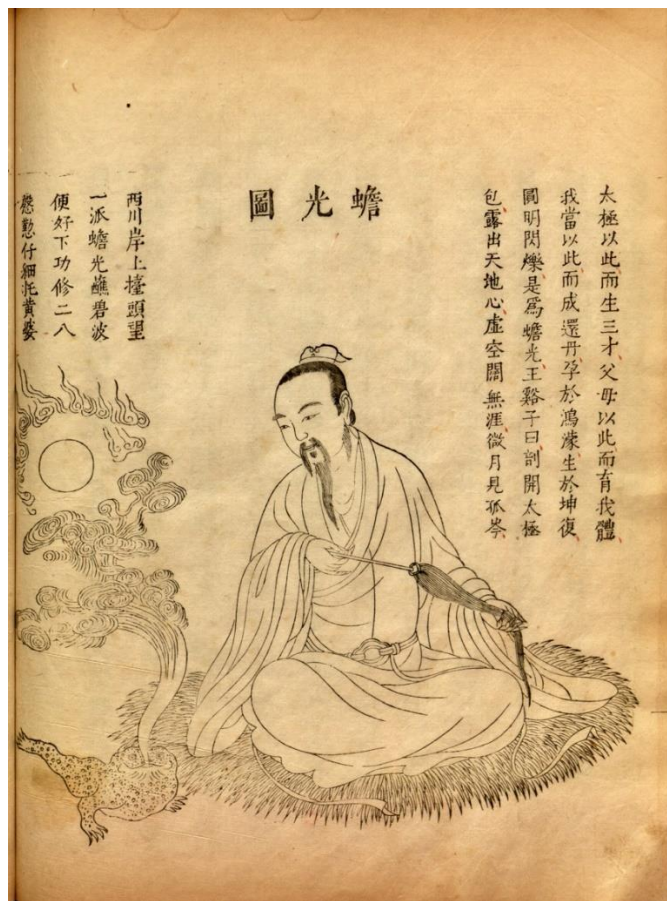 太極以此而生三才父母以此而育我體
我當以此而成還丹孕於鴻濛生於坤復
圓明閃爍是爲蟾光王谿子曰剖開太極
包露出天地心虛空闊無涯微月見孤岑
蟾光圖
西川岸上擡頭望
一派蟾光蘸碧波
便好下功修二八
慇懃仔細托黃婆